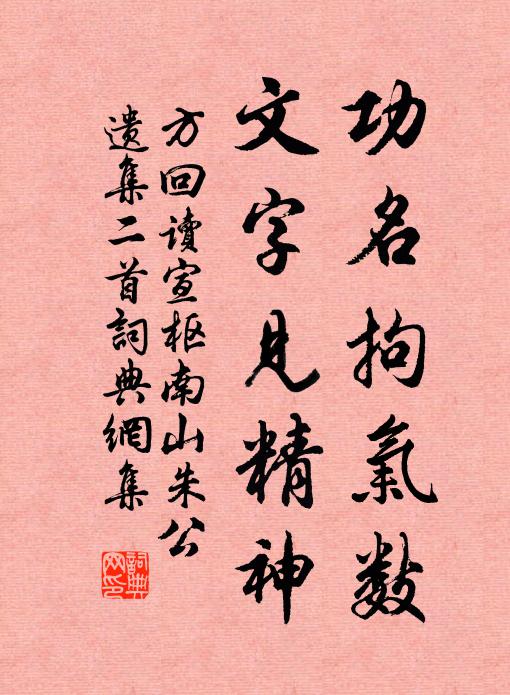 功名拘氣數
文字見精神
方回读宣枢南山朱公
遗集二首詞典網集
詞典网印